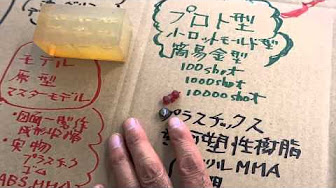 プロト型
小ロットモールド型
簡易金型
100shot
1000shot
10000shot
モデル
原型
マスターモデル
・図面一製作
成形収縮
・実物
プラスチック
ゴム
ABS,MMA
プラスチックス
塑性樹脂
MMA